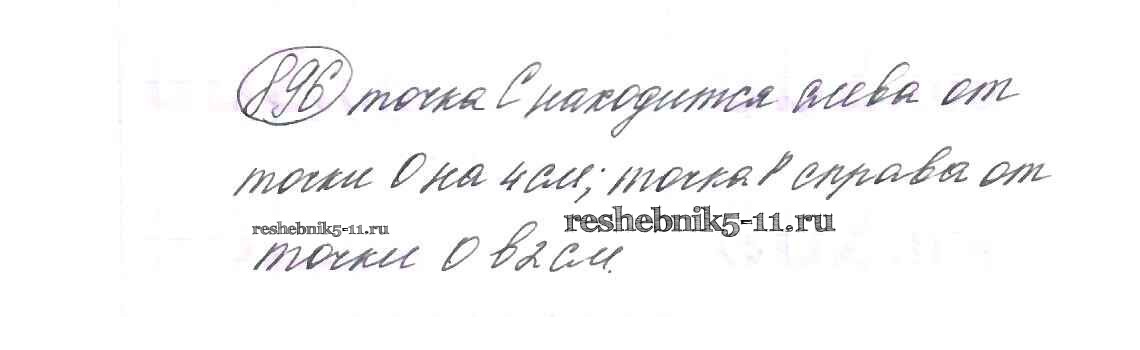 896 точка С находится слева от
точки О на 4 см; точка Р справа от
reshebnik5-11.ru reshebnik5-11.ru
точки О в 2 см.